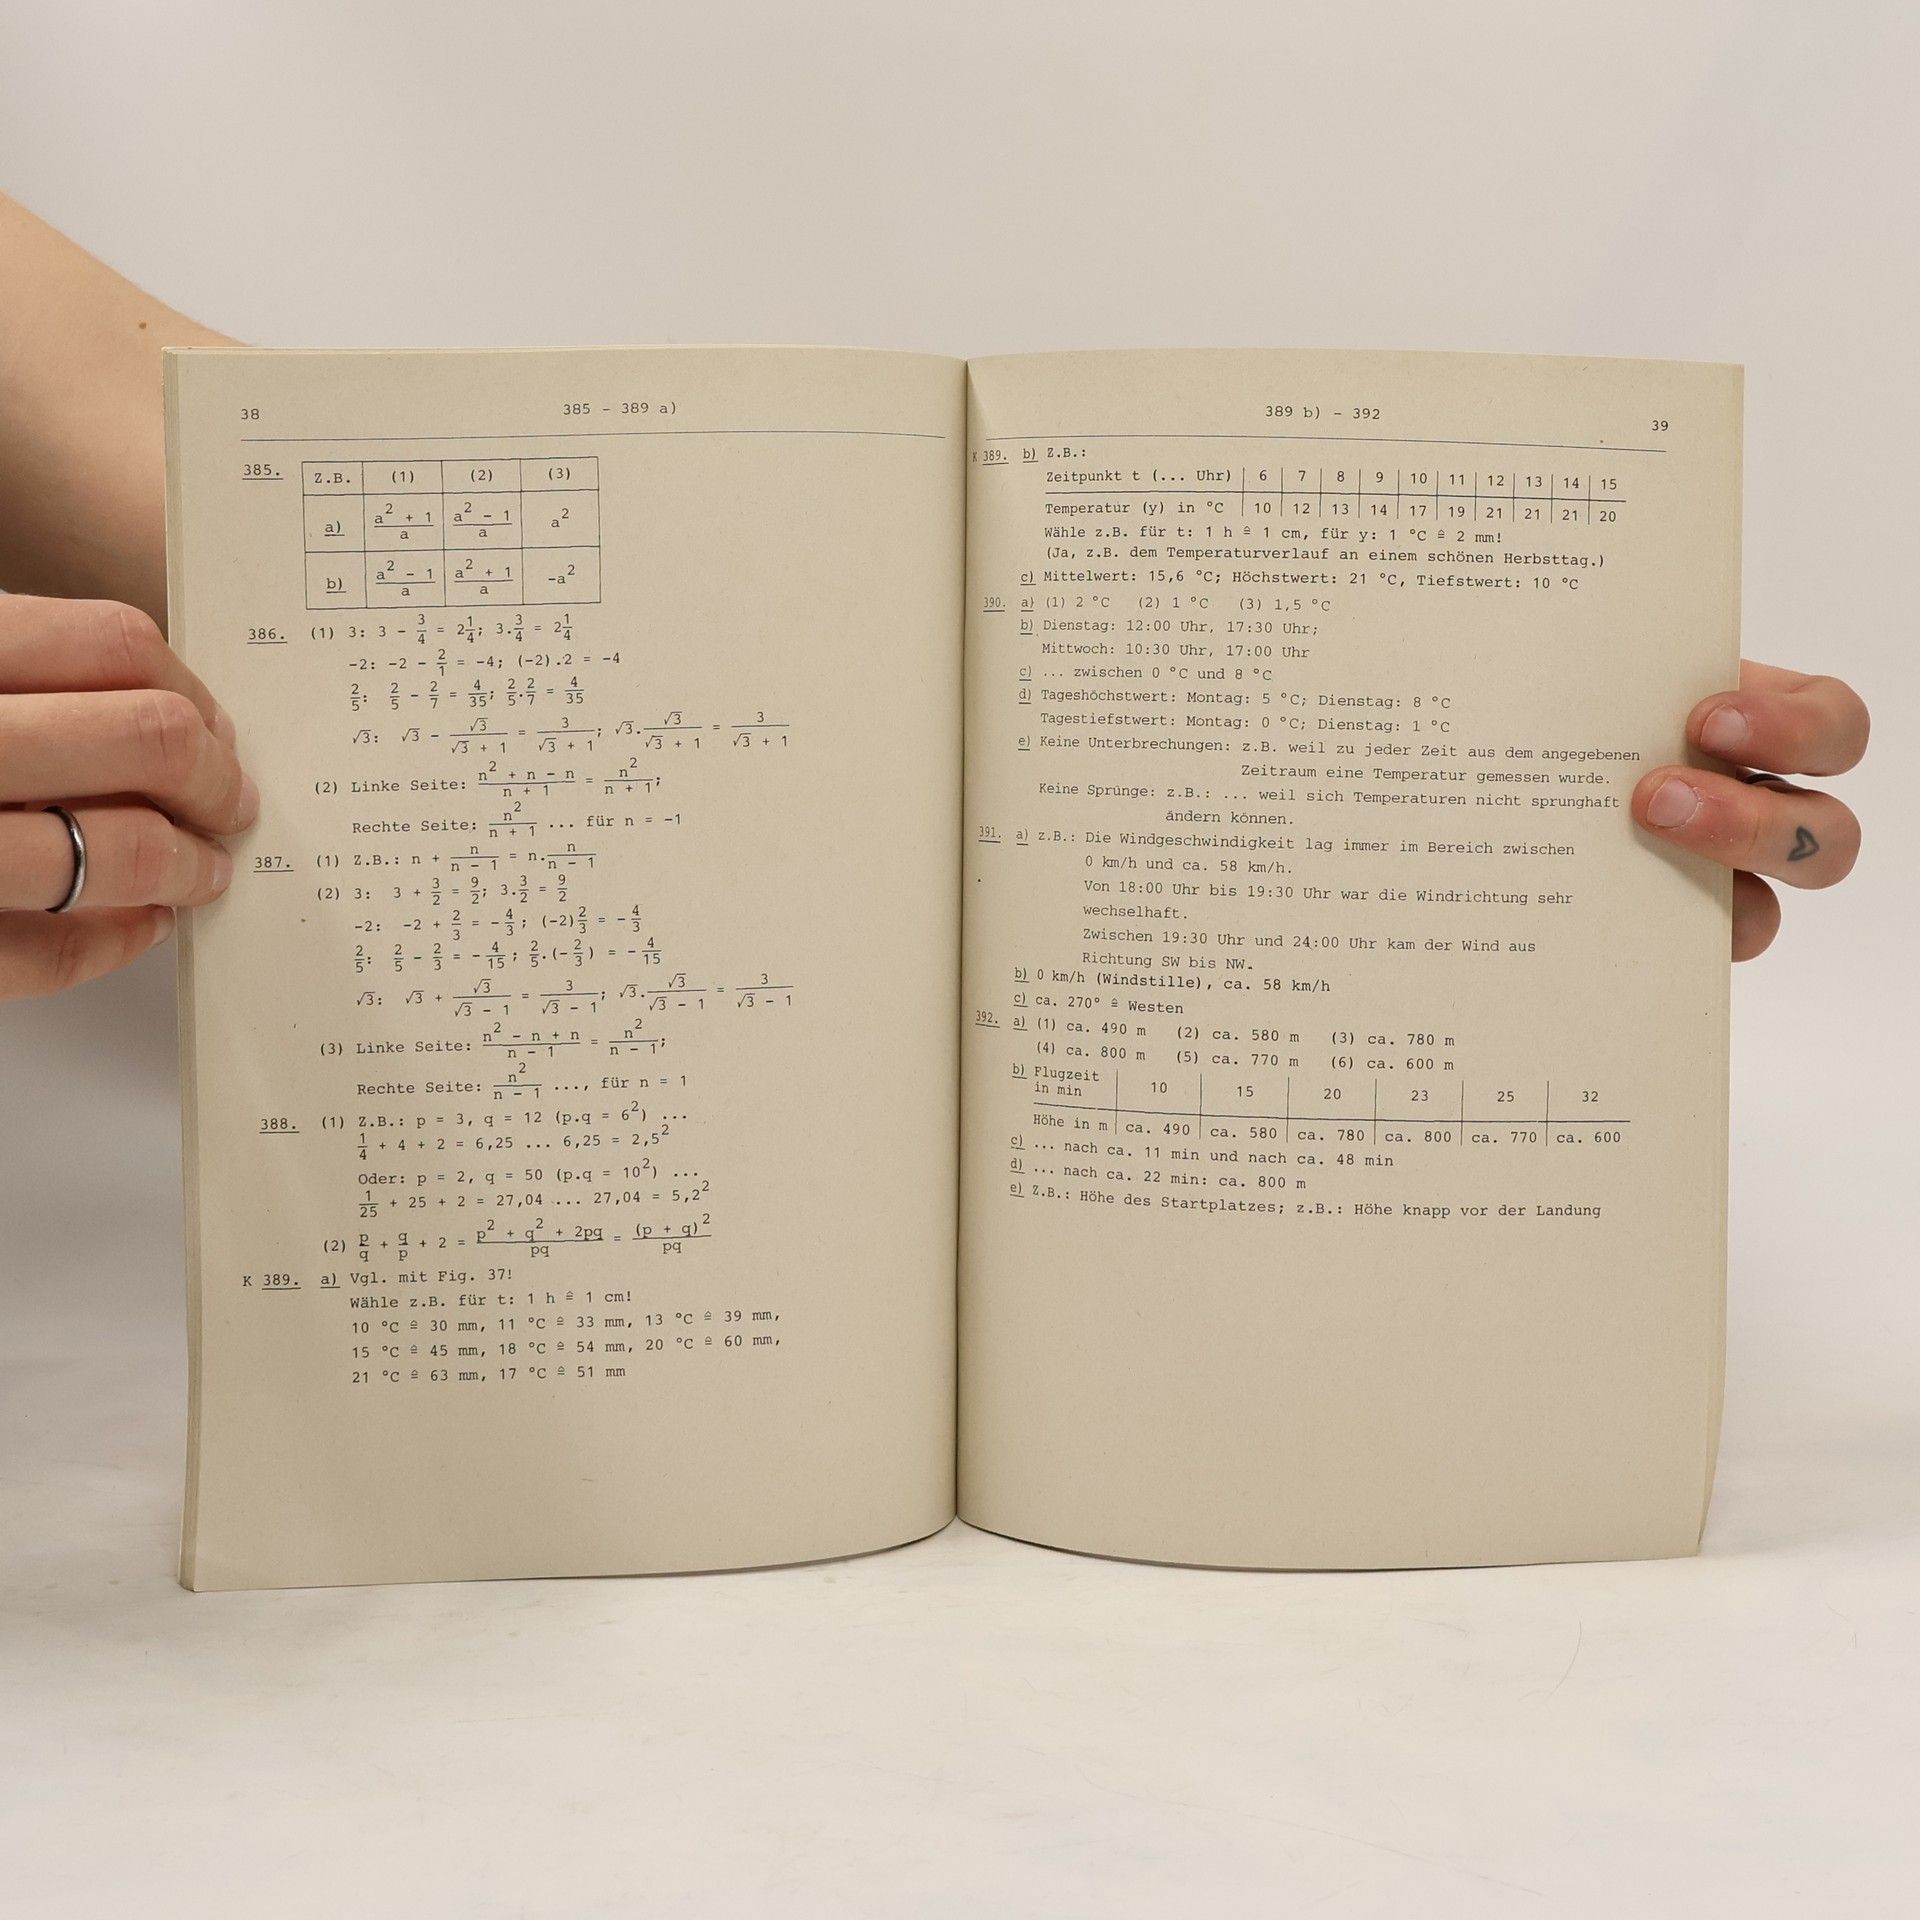 38
385 - 389 a)
385.
Z.B. (1) (2) (3)
a) (a² + 1)/a (a² - 1)/a a²
b) (a² - 1)/a (a² + 1)/a -a²
386. (1) 3: 3 - 3/4 = 2 1/4; 3.3/4 = 2 1/4
-2: -2 - 2/1 = -4; (-2).2 = -4
2/5: 2/5 - 2/7 = 4/35; 2/5.2/7 = 4/35
√3: √3 - √3/(√3 + 1) = 3/(√3 + 1); √3.√3/(√3 + 1) = 3/(√3 + 1)
(2) Linke Seite: (n² + n - n)/(n + 1) = n²/(n + 1);
Rechte Seite: n²/(n + 1) ... für n = -1
387. (1) Z.B.: n + n/(n - 1) = n.n/(n - 1)
(2) 3: 3 + 3/2 = 9/2; 3.3/2 = 9/2
-2: -2 + 2/3 = -4/3; (-2)2/3 = -4/3
2/5: 2/5 - 2/3 = -4/15; 2/5.(-2/3) = -4/15
√3: √3 + √3/(√3 - 1) = 3/(√3 - 1); √3.√3/(√3 - 1) = 3/(√3 - 1)
(3) Linke Seite: (n² - n + n)/(n - 1) = n²/(n - 1);
Rechte Seite: n²/(n - 1) ..., für n = 1
388. (1) Z.B.: p = 3, q = 12 (p.q = 6²) ...
1/4 + 4 + 2 = 6,25 ... 6,25 = 2,5²
Oder: p = 2, q = 50 (p.q = 10²) ...
1/25 + 25 + 2 = 27,04 ... 27,04 = 5,2²
(2) p/q + q/p + 2 = (p² + q² + 2pq)/pq = (p + q)²/pq
K 389. a) Vgl. mit Fig. 37!
Wähle z.B. für t: 1 h ≙ 1 cm!
10 °C ≙ 30 mm, 11 °C ≙ 33 mm, 13 °C ≙ 39 mm,
15 °C ≙ 45 mm, 18 °C ≙ 54 mm, 20 °C ≙ 60 mm,
21 °C ≙ 63 mm, 17 °C ≙ 51 mm
389 b) - 392
39
K 389. b) Z.B.:
Zeitpunkt t (... Uhr) 6 7 8 9 10 11 12 13 14 15
Temperatur (y) in °C 10 12 13 14 17 19 21 21 21 20
Wähle z.B. für t: 1 h ≙ 1 cm, für y: 1 °C ≙ 2 mm!
(Ja, z.B. dem Temperaturverlauf an einem schönen Herbsttag.)
c) Mittelwert: 15,6 °C; Höchstwert: 21 °C, Tiefstwert: 10 °C
390. a) (1) 2 °C (2) 1 °C (3) 1,5 °C
b) Dienstag: 12:00 Uhr, 17:30 Uhr;
Mittwoch: 10:30 Uhr, 17:00 Uhr
c) ... zwischen 0 °C und 8 °C
d) Tageshöchstwert: Montag: 5 °C; Dienstag: 8 °C
Tagestiefstwert: Montag: 0 °C; Dienstag: 1 °C
e) Keine Unterbrechungen: z.B. weil zu jeder Zeit aus dem angegebenen
Zeitraum eine Temperatur gemessen wurde.
Keine Sprünge: z.B.: ... weil sich Temperaturen nicht sprunghaft
ändern können.
391. a) z.B.: Die Windgeschwindigkeit lag immer im Bereich zwischen
0 km/h und ca. 58 km/h.
Von 18:00 Uhr bis 19:30 Uhr war die Windrichtung sehr
wechselhaft.
Zwischen 19:30 Uhr und 24:00 Uhr kam der Wind aus
Richtung SW bis NW.
b) 0 km/h (Windstille), ca. 58 km/h
c) ca. 270° ≙ Westen
392. a) (1) ca. 490 m (2) ca. 580 m (3) ca. 780 m
(4) ca. 800 m (5) ca. 770 m (6) ca. 600 m
b) Flugzeit
in min 10 15 20 23 25 32
Höhe in m ca. 490 ca. 580 ca. 780 ca. 800 ca. 770 ca. 600
c) ... nach ca. 11 min und nach ca. 48 min
d) ... nach ca. 22 min: ca. 800 m
e) Z.B.: Höhe des Startplatzes; z.B.: Höhe knapp vor der Landung